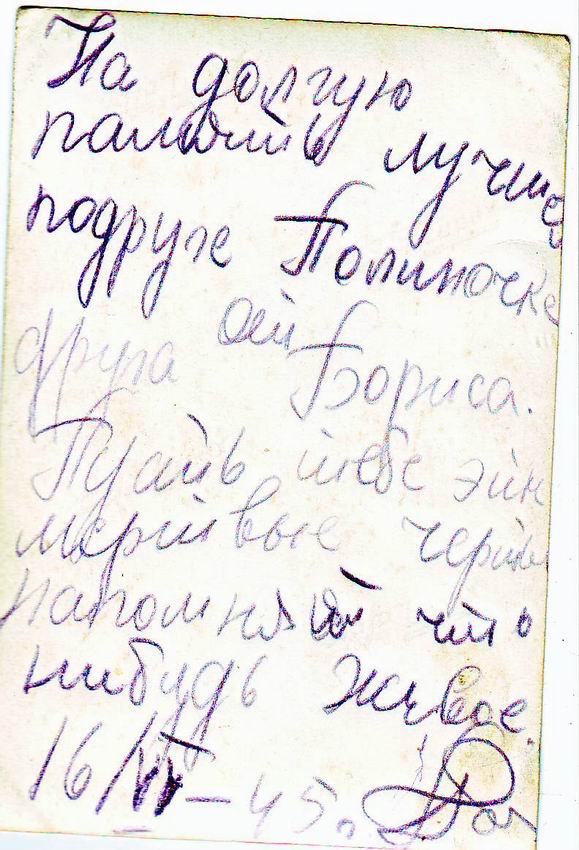 На долгую
память лучшей
подруге Полиночке
от
друга Бориса.
Пусть тебе эти
мертвые черты
напомнят что
нибудь живое.
16/VI-45г.